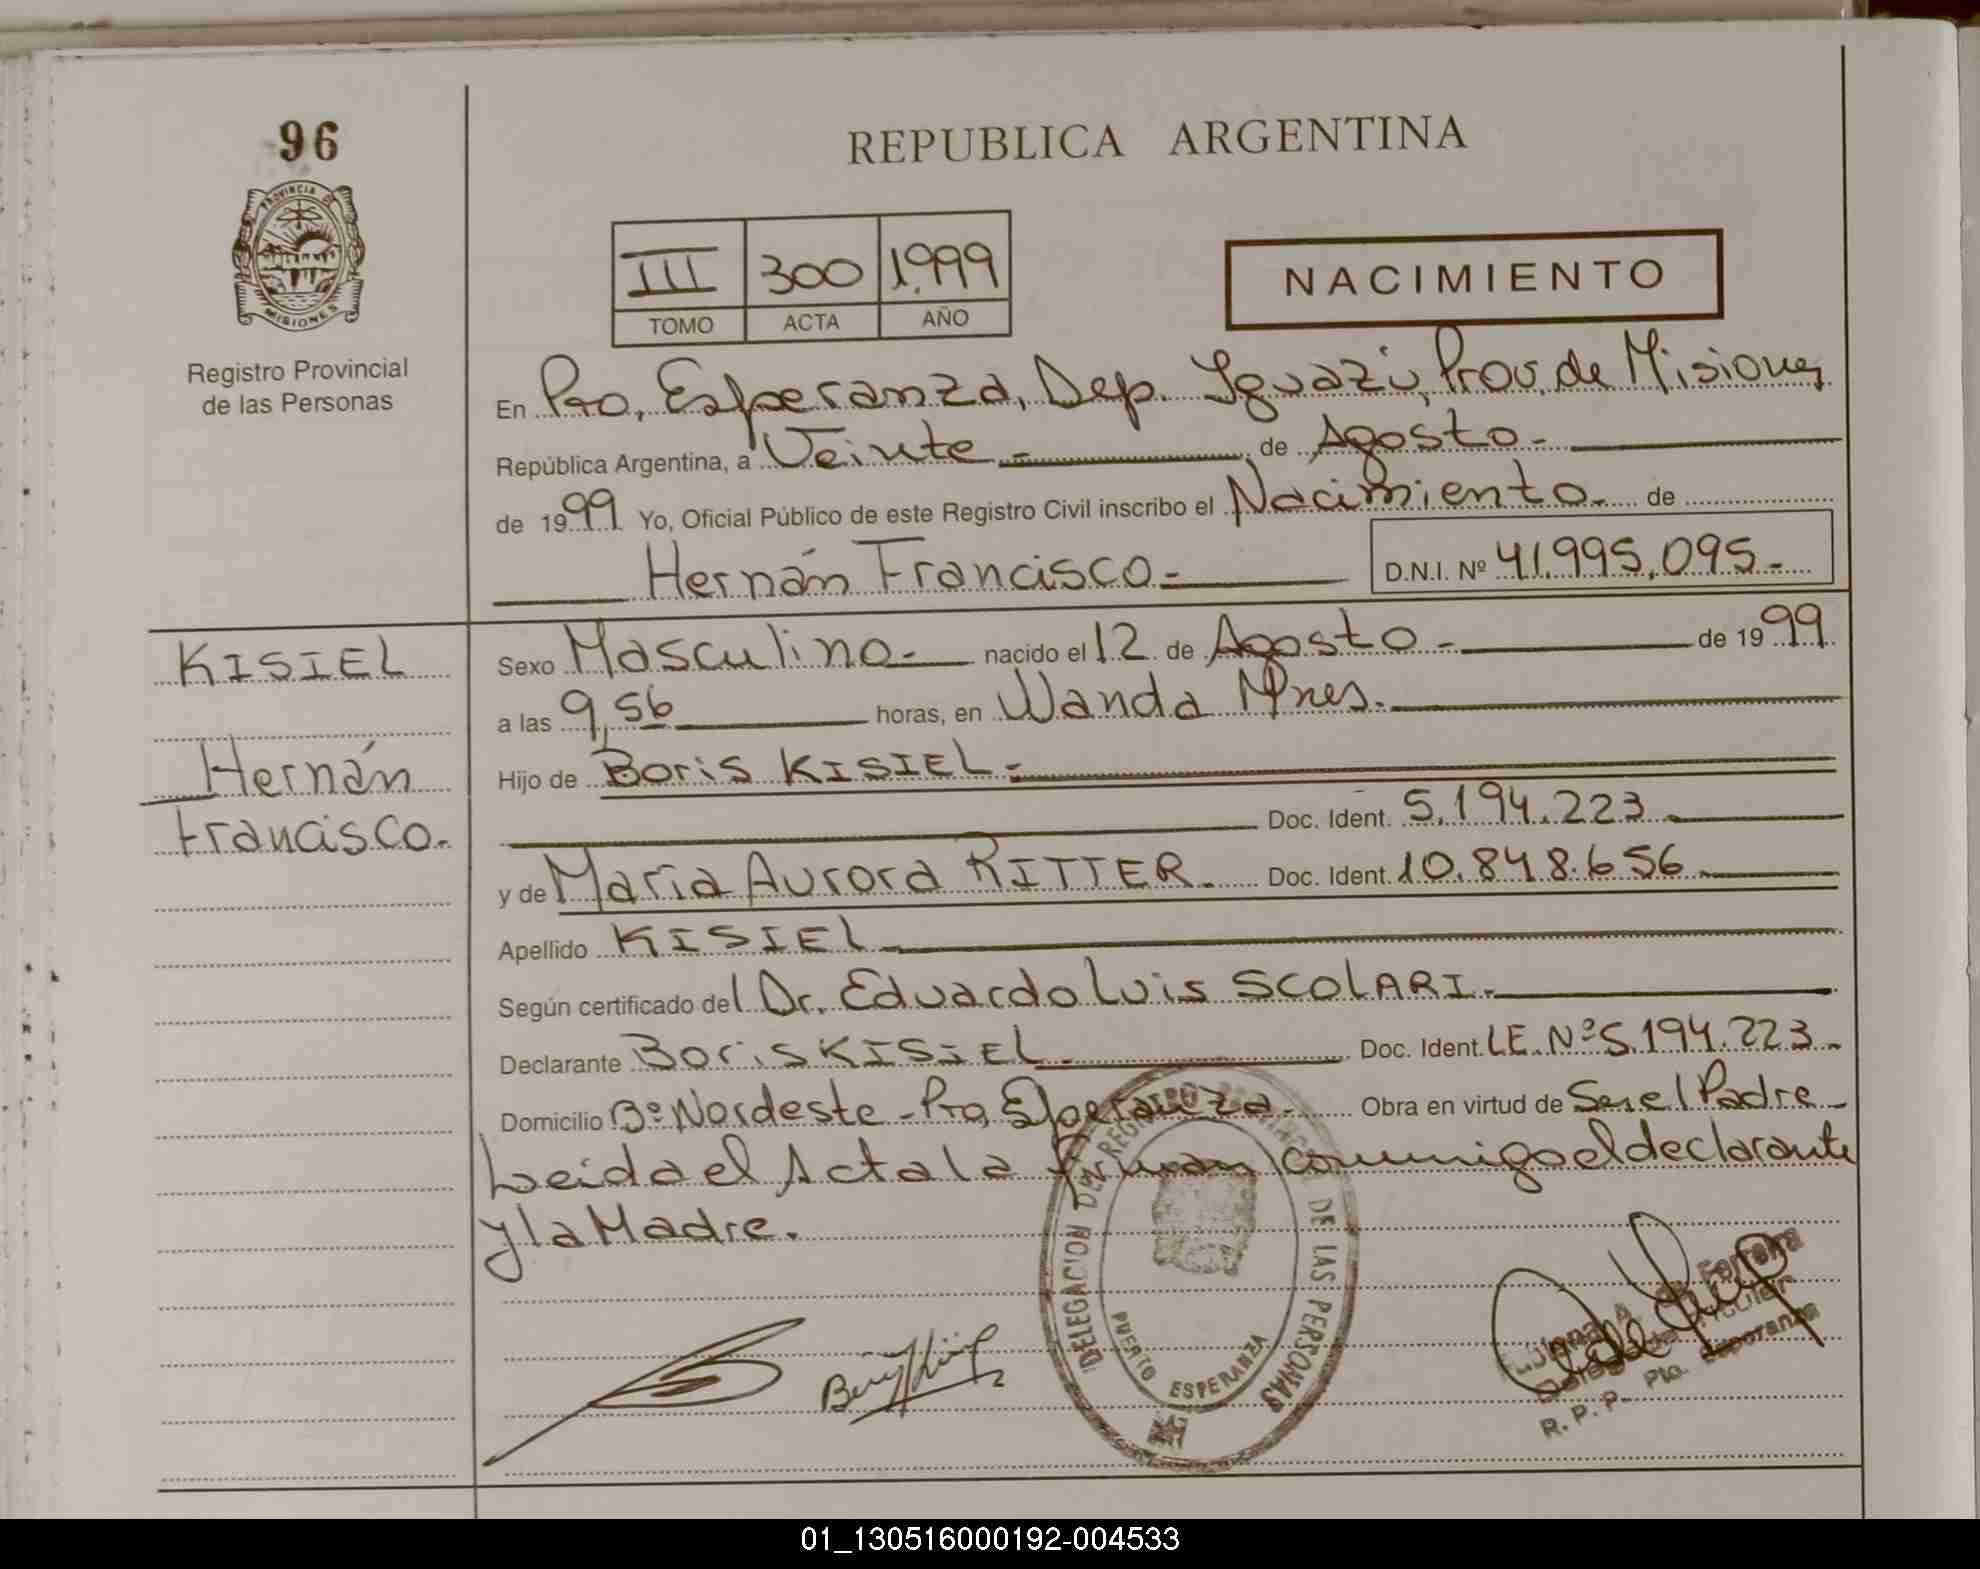 96
PROVINCIA DE
MISIONES
Registro Provincial
de las Personas
REPUBLICA ARGENTINA
III 300 1.999
TOMO ACTA AÑO
NACIMIENTO
En Pto, Esperanza, Dep. Iguazú, Prov, de Misiones
República Argentina, a Veinte - de Agosto -
de 1999 Yo, Oficial Público de este Registro Civil inscribo el Nacimiento. de
Hernán Francisco - D.N.I. Nº 41.995.095-
KISIEL
Hernán
Francisco.
Sexo Masculino - nacido el 12 de Agosto - de 1999
a las 9,56 horas, en Wanda Mnes.
Hijo de Boris KISIEL -
Doc. Ident. 5.194.223
y de María Aurora RITTER. Doc. Ident. 10.848.656
Apellido KISIEL
Según certificado del Dr. Eduardo Luis SCOLARI.
Declarante Boris KISIEL. Doc. Ident. LE. Nº 5.194.223-
Domicilio Bº Nordeste - Pto, Esperanza - Obra en virtud de Ser el Padre -
Leida el Acta la firman comunigo el declarante
y la Madre.
DELEGACION DEL REGISTRO PROVINCIAL DE LAS PERSONAS
PUERTO ESPERANZA
A. de Ferreira
Delegada Titular
R. P. P. - Pto. Esperanza
01_130516000192-004533